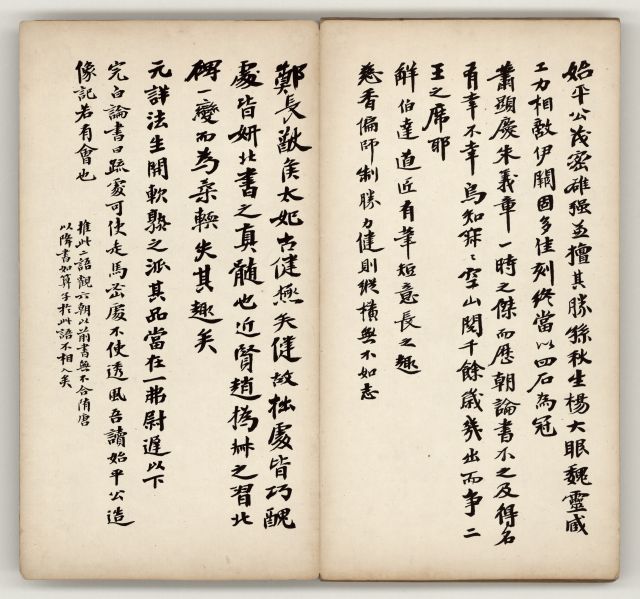 始平公茂密雄强並擅其勝孫秋生楊大眼魏靈藏
工力相敵伊闕固多佳刻終當以四石為冠
蕭顯慶朱義章一時之傑而歷朝論書不之及得名
有幸不幸烏知寂寂空山閱千餘歲幾出而爭二
王之席耶
解伯達道匠有筆短意長之趣
慈香偏師制勝力健則縱橫無不如志
鄭長猷侯太妃古健極矣健故拙處皆巧醜
處皆妍北書之真髓也近賢趙撝叔之習北
碑一變而為柔輭失其趣矣
元詳法生開軟媚之派其品當在一弗尉遲以下
完白論書曰疏處可使走馬密處不使透風吾讀始平公造
像記若有會也
推此二語觀六朝以前書無不合隋唐
以降書如算子於此語不相入矣